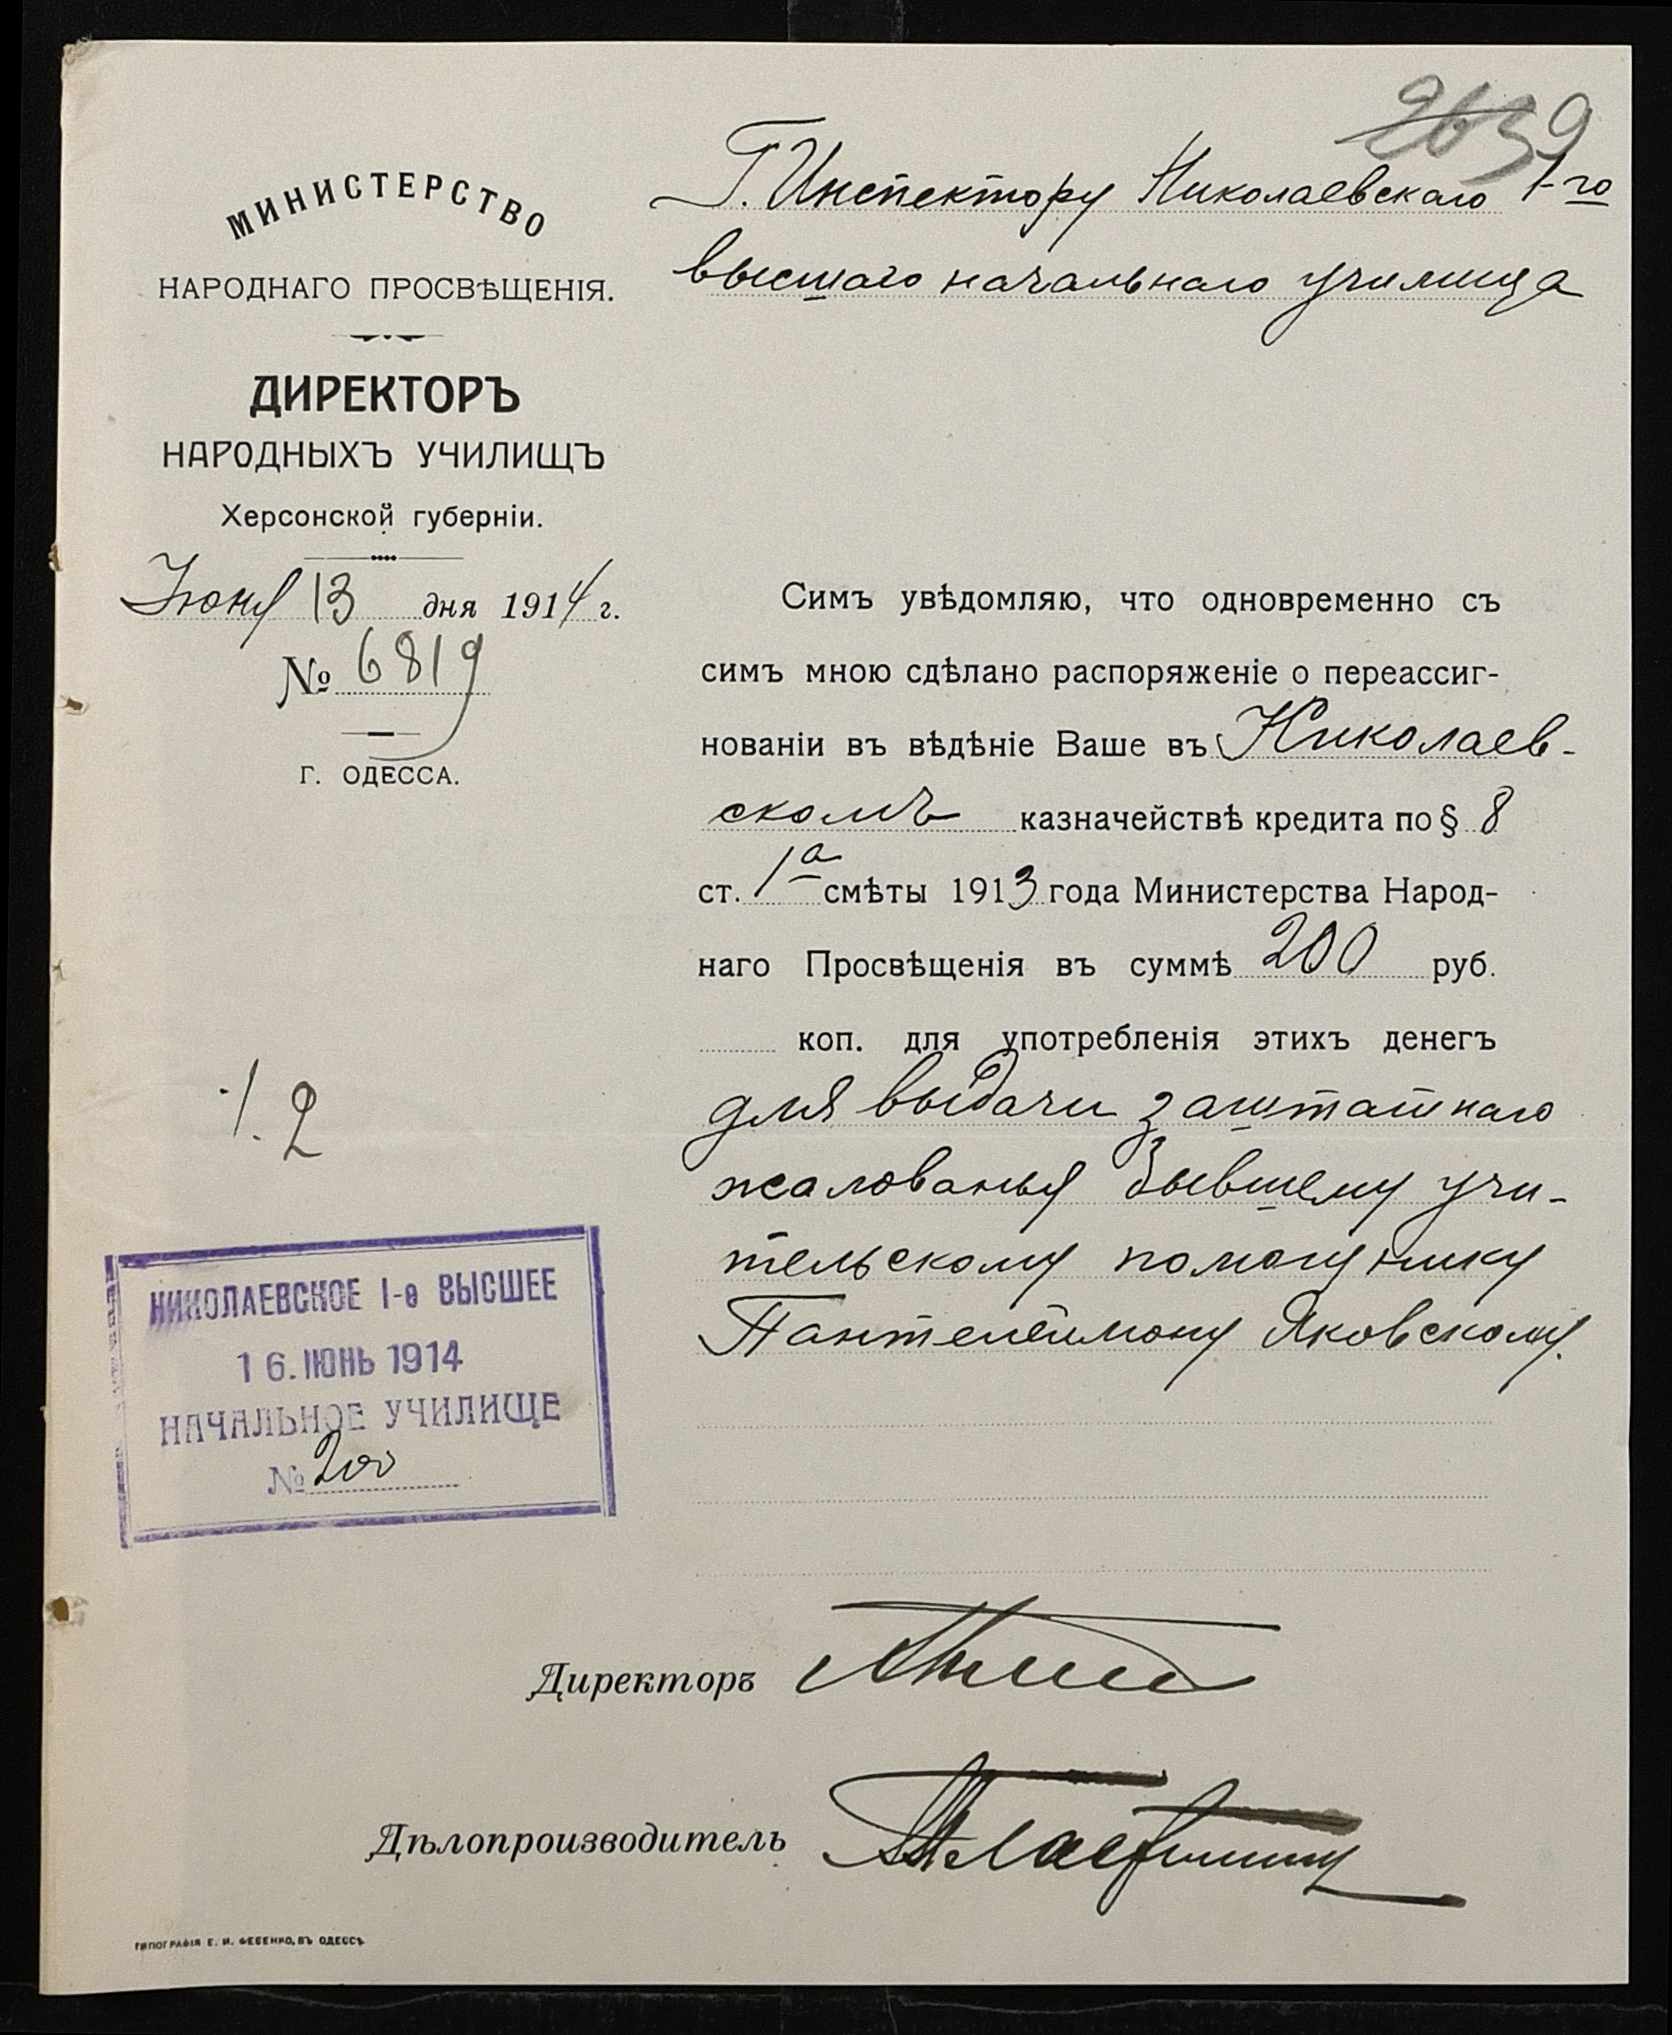 39
Г. Инспектору Николаевскаго 1-го
высшаго начальнаго училища
МИНИСТЕРСТВО
НАРОДНАГО ПРОСВѢЩЕНІЯ.
ДИРЕКТОРЪ
НАРОДНЫХЪ УЧИЛИЩЪ
Херсонской губерніи.
Іюня 13 дня 1914 г.
№ 6819
Г. ОДЕССА.
Симъ увѣдомляю, что одновременно съ
симъ мною сдѣлано распоряженіе о переассиг-
нованіи въ вѣдѣніе Ваше въ Николаев-
скомъ казначействѣ кредита по § 8
ст. 1а смѣты 1913 года Министерства Народ-
наго Просвѣщенія въ суммѣ 200 руб.
коп. для употребленія этихъ денегъ
для выдачи заштатнаго
жалованья бывшему учи-
тельскому помощнику
Пантелеимону Яковскому.
1. 2
НИКОЛАЕВСКОЕ 1-е ВЫСШЕЕ
16. ІЮНЬ 1914
НАЧАЛЬНОЕ УЧИЛИЩЕ
№ 200
Директоръ
Дѣлопроизводитель
ТИПОГРАФІЯ Е. И. ФЕСЕНКО, ВЪ ОДЕССѢ